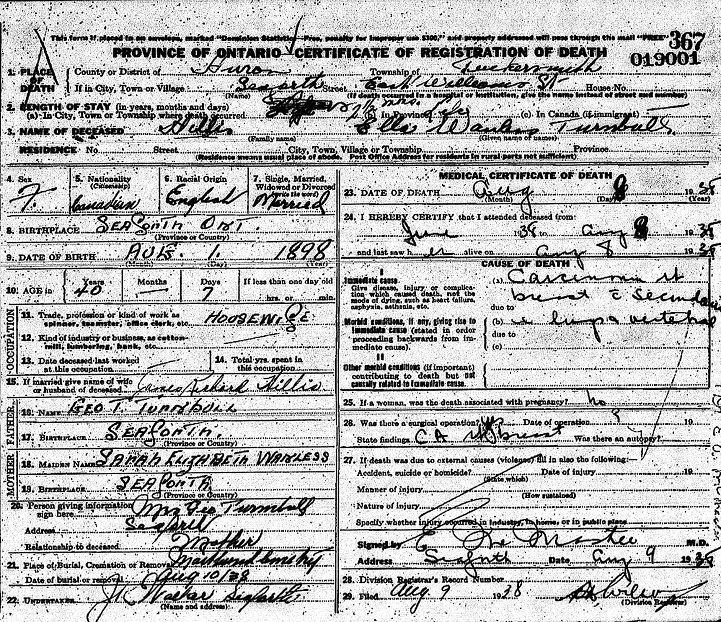 This form if placed in an envelope, marked "Dominion Statistics—Free, penalty for improper use $300," and properly addressed will pass through the mail "FREE"
367
PROVINCE OF ONTARIO—CERTIFICATE OF REGISTRATION OF DEATH
019001
1. PLACE OF DEATH
County or District of Huron Township of Tuckersmith
If in City, Town or Village Seaforth Street East Williams St House No.
(Name) (If death occurred in a hospital or institution, give the name instead of street and number)
2. LENGTH OF STAY (in years, months and days)
(a) In City, Town or Township where death occurred (b) In Province life (c) In Canada (if immigrant)
3. NAME OF DECEASED Hillis Ella Turnbull
(Family name) (Given name or names)
RESIDENCE No. Street City, Town, Village or Township Province
(Residence means usual place of abode. Post Office Address for residents in rural parts not sufficient)
4. Sex F.
5. Nationality (Citizenship) Canadian
6. Racial Origin English
7. Single, Married, Widowed or Divorced (write the word) Married
8. BIRTHPLACE SEAFORTH ONT.
(Province or Country)
9. DATE OF BIRTH AUG. 1. 1898
(Month) (Day) (Year)
10. AGE in Years 40 Months — Days 7 If less than one day old hrs. or min.
OCCUPATION
11. Trade, profession or kind of work as spinner, teamster, office clerk, etc. HOUSEWIFE
12. Kind of industry or business, as cotton-mill, lumbering, bank, etc.
13. Date deceased last worked at this occupation
14. Total yrs. spent in this occupation
15. If married give name of wife or husband of deceased James Richard Hillis
FATHER
16. NAME GEO T. TURNBULL
17. BIRTHPLACE SEAFORTH
(Province or Country)
MOTHER
18. MAIDEN NAME SARAH ELIZABETH WANLESS
19. BIRTHPLACE SEAFORTH
(Province or Country)
20. Person giving information sign here Mrs Geo Turnbull
Address Seaforth
Relationship to deceased Mother
21. Place of Burial, Cremation or Removal
Date of burial or removal Aug 10/38
22. UNDERTAKER Walker Seaforth
(Name and address)
MEDICAL CERTIFICATE OF DEATH
23. DATE OF DEATH Aug 8 1938
(Month) (Day) (Year)
24. I HEREBY CERTIFY that I attended deceased from:
June 1938 Aug 8 1938
and last saw her alive on Aug 8 1938
CAUSE OF DEATH
I
Immediate cause
Give disease, injury or complication which caused death, not the mode of dying, such as heart failure, asphyxia, asthenia, etc.
(a) Carcinoma
breast
due to
Morbid conditions, if any, giving rise to immediate cause (stated in order proceeding backwards from immediate cause).
(b)
due to
(c)
II
Other morbid conditions (if important) contributing to death but not causally related to immediate cause.
25. If a woman, was the death associated with pregnancy? no
26. Was there a surgical operation? yes Date of operation ?
State findings CA breast Was there an autopsy?
27. If death was due to external causes (violence) fill in also the following:
Accident, suicide or homicide? Date of injury 19
(State which)
Manner of injury
(How sustained)
Nature of injury
Specify whether injury occurred in industry, in home, or in public place
Signed by M.D.
Address Seaforth Date Aug 9 1938
28. Division Registrar's Record Number
29. Filed Aug 9 1938 Wilson
(Division Registrar)